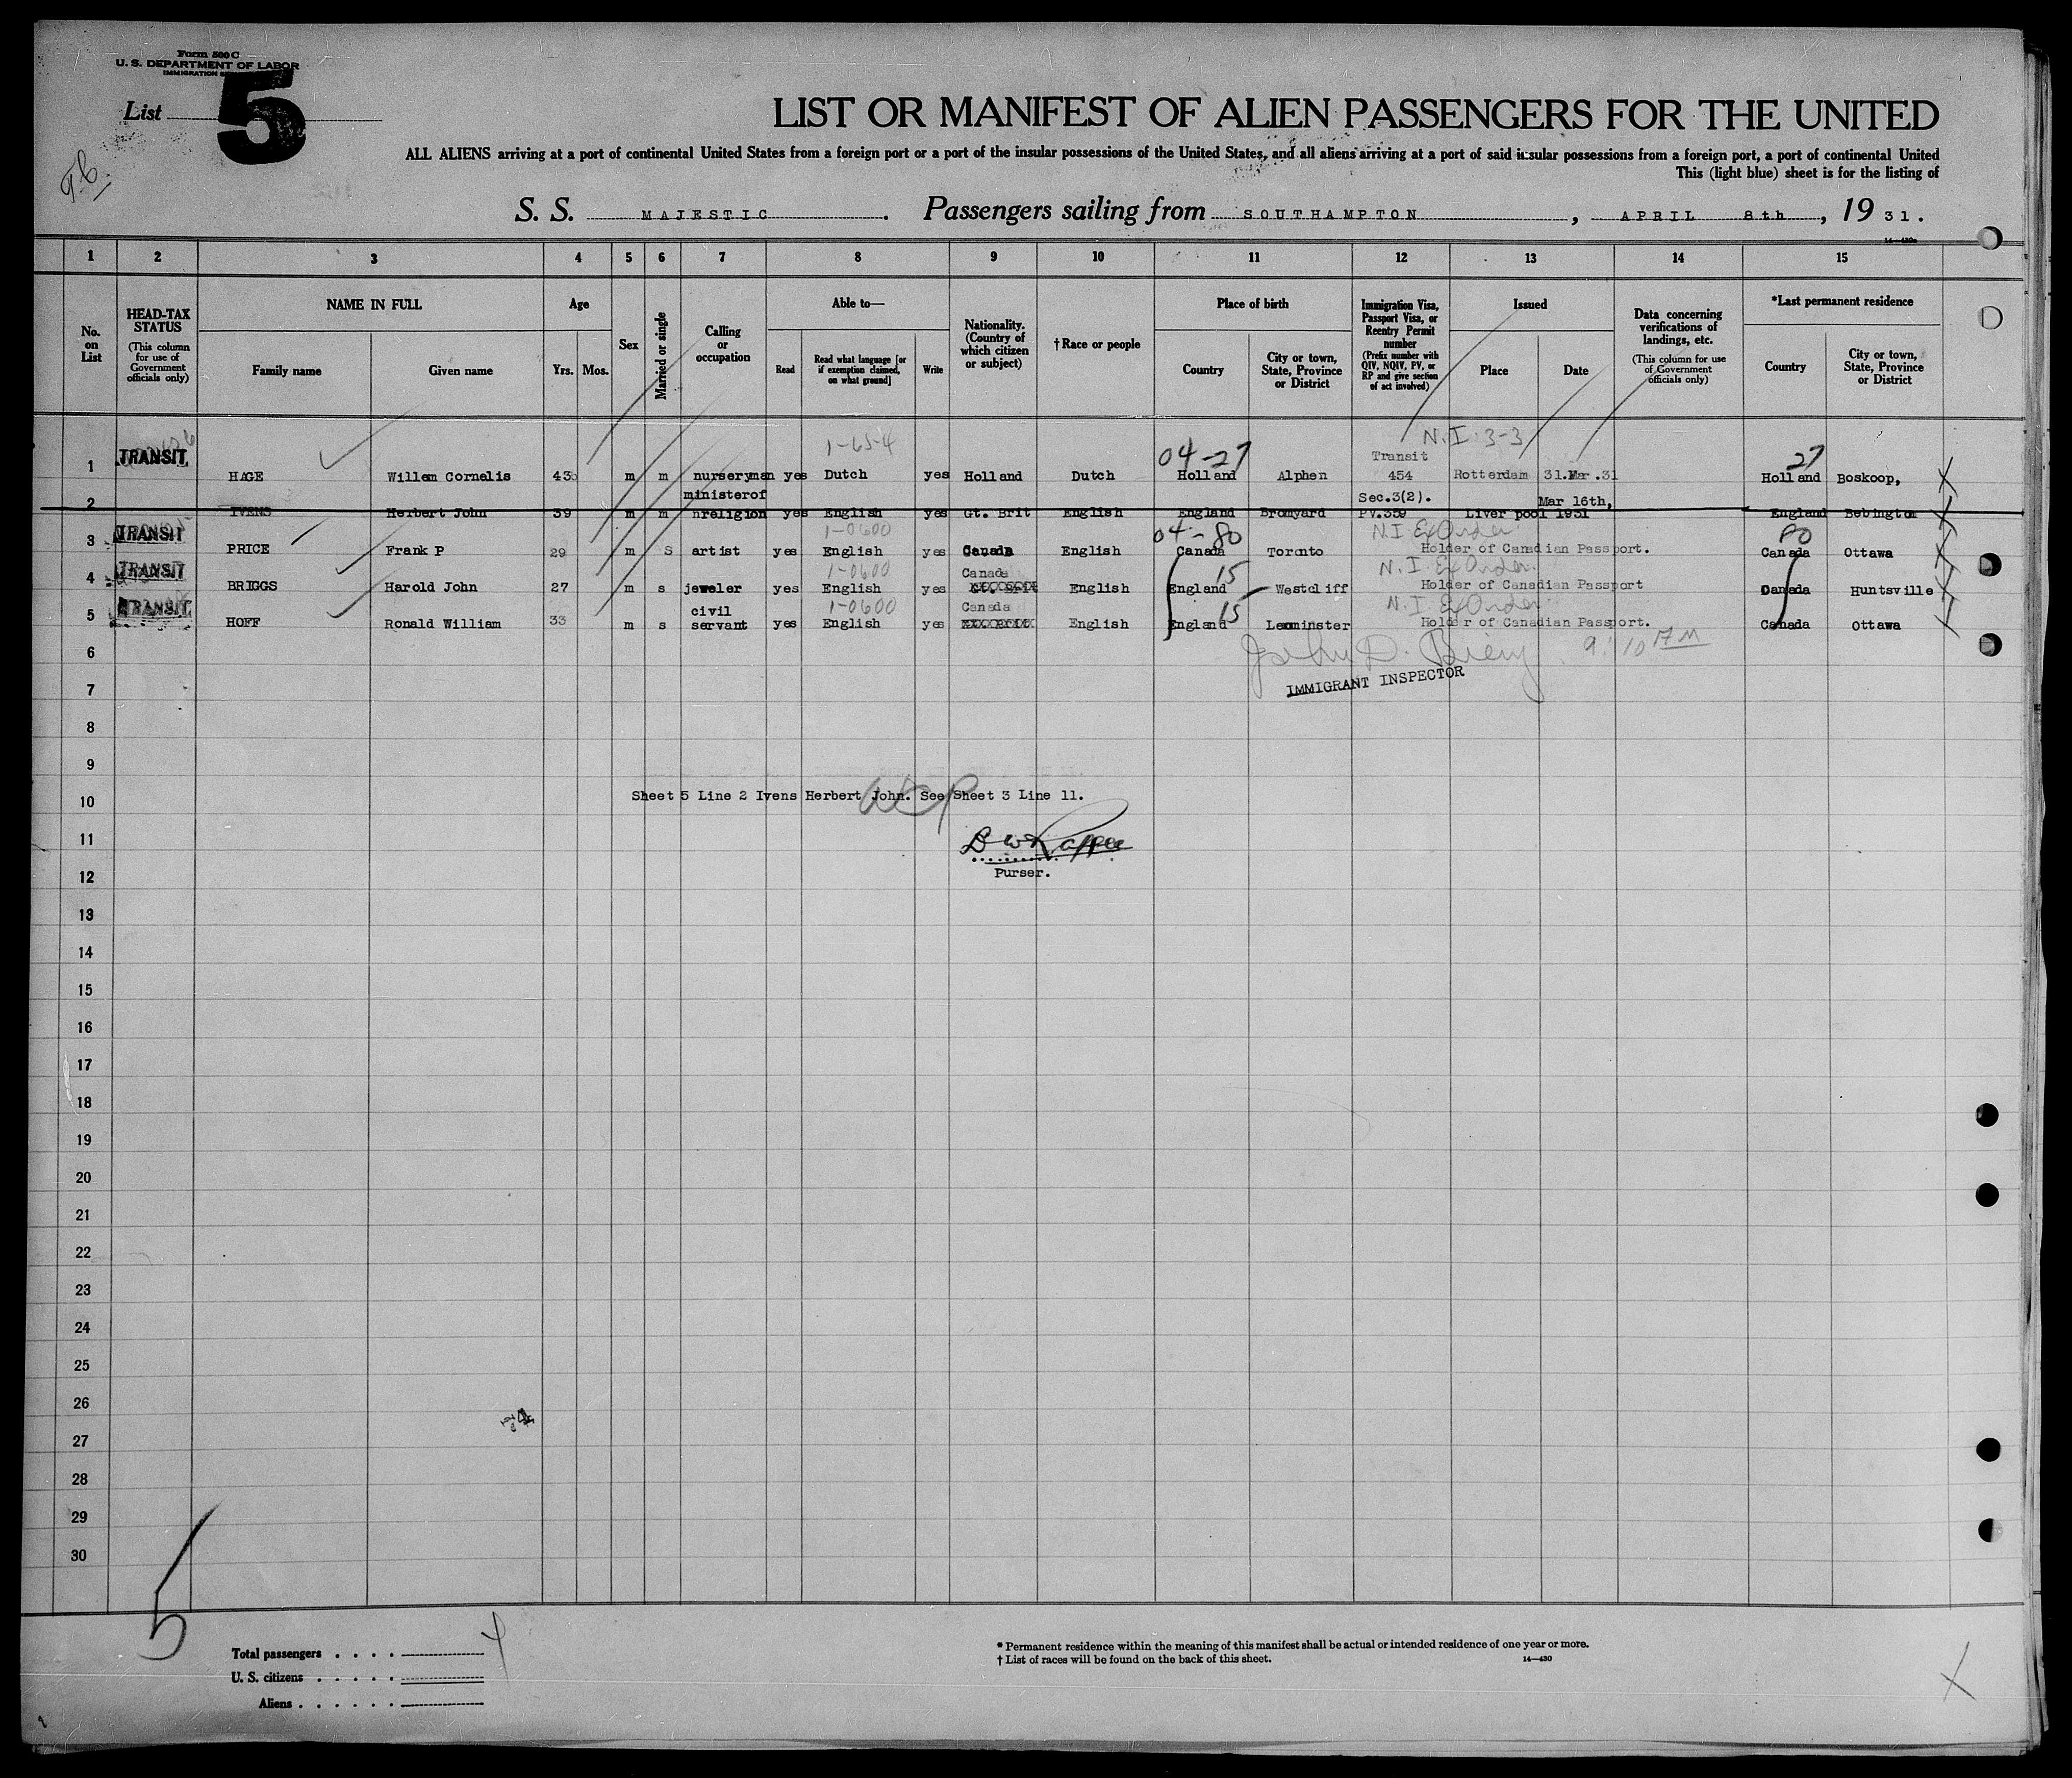 Form 500 C
U. S. DEPARTMENT OF LABOR
IMMIGRATION
List 5
LIST OR MANIFEST OF ALIEN PASSENGERS FOR THE UNITED
ALL ALIENS arriving at a port of continental United States from a foreign port or a port of the insular possessions of the United States, and all aliens arriving at a port of said insular possessions from a foreign port, a port of continental United
This (light blue) sheet is for the listing of
S. S. MAJESTIC. Passengers sailing from SOUTHAMPTON, APRIL 8th, 19 31.
1 2 3 4 5 6 7 8 9 10 11 12 13 14 15
No. on List
HEAD-TAX STATUS (This column for use of Government officials only)
NAME IN FULL
Family name Given name
Age
Yrs. Mos.
Sex
Married or single
Calling or occupation
Able to—
Read Read what language [or if exemption claimed, on what ground] Write
Nationality. (Country of which citizen or subject)
†Race or people
Place of birth
Country City or town, State, Province or District
Immigration Visa, Passport Visa, or Reentry Permit number (Prefix number with QIV, NQIV, PV, or RP and give section of act involved)
Issued
Place Date
Data concerning verifications of landings, etc. (This column for use of Government officials only)
*Last permanent residence
Country City or town, State, Province or District
1-65-4 04-27 N.I. 3-3 27
1 TRANSIT HAGE Willem Cornelis 43 m m nurseryman yes Dutch yes Holland Dutch Holland Alphen Transit 454 Sec.3(2). Rotterdam 31.Mar.31 Holland Boskoop,
2 IVENS Herbert John 39 m m minister of religion yes English yes Gt. Brit English England Bromyard PV.359 Liverpool Mar 16th, 1931 England Bebington
1-0600 04-80 N.I. Ex Order 80
3 TRANSIT PRICE Frank P 29 m S artist yes English yes Canada English Canada Toronto Holder of Canadian Passport. Canada Ottawa
1-0600 15 N.I. Ex Order
4 TRANSIT BRIGGS Harold John 27 m s jeweler yes English yes Canada English England Westcliff Holder of Canadian Passport Canada Huntsville
1-0600 15 N.I. Ex Order
5 TRANSIT HOFF Ronald William 33 m s civil servant yes English yes Canada English England Leominster Holder of Canadian Passport. Canada Ottawa
6
9:10 AM
IMMIGRANT INSPECTOR
7
8
9
10 Sheet 5 Line 2 Ivens Herbert John. See Sheet 3 Line 11.
11
12 Purser.
13
14
15
16
17
18
19
20
21
22
23
24
25
26
27
28
29
30
5
Total passengers . . . . 4
U. S. citizens . . . . .
Aliens . . . . . .
* Permanent residence within the meaning of this manifest shall be actual or intended residence of one year or more.
† List of races will be found on the back of this sheet.
14—430